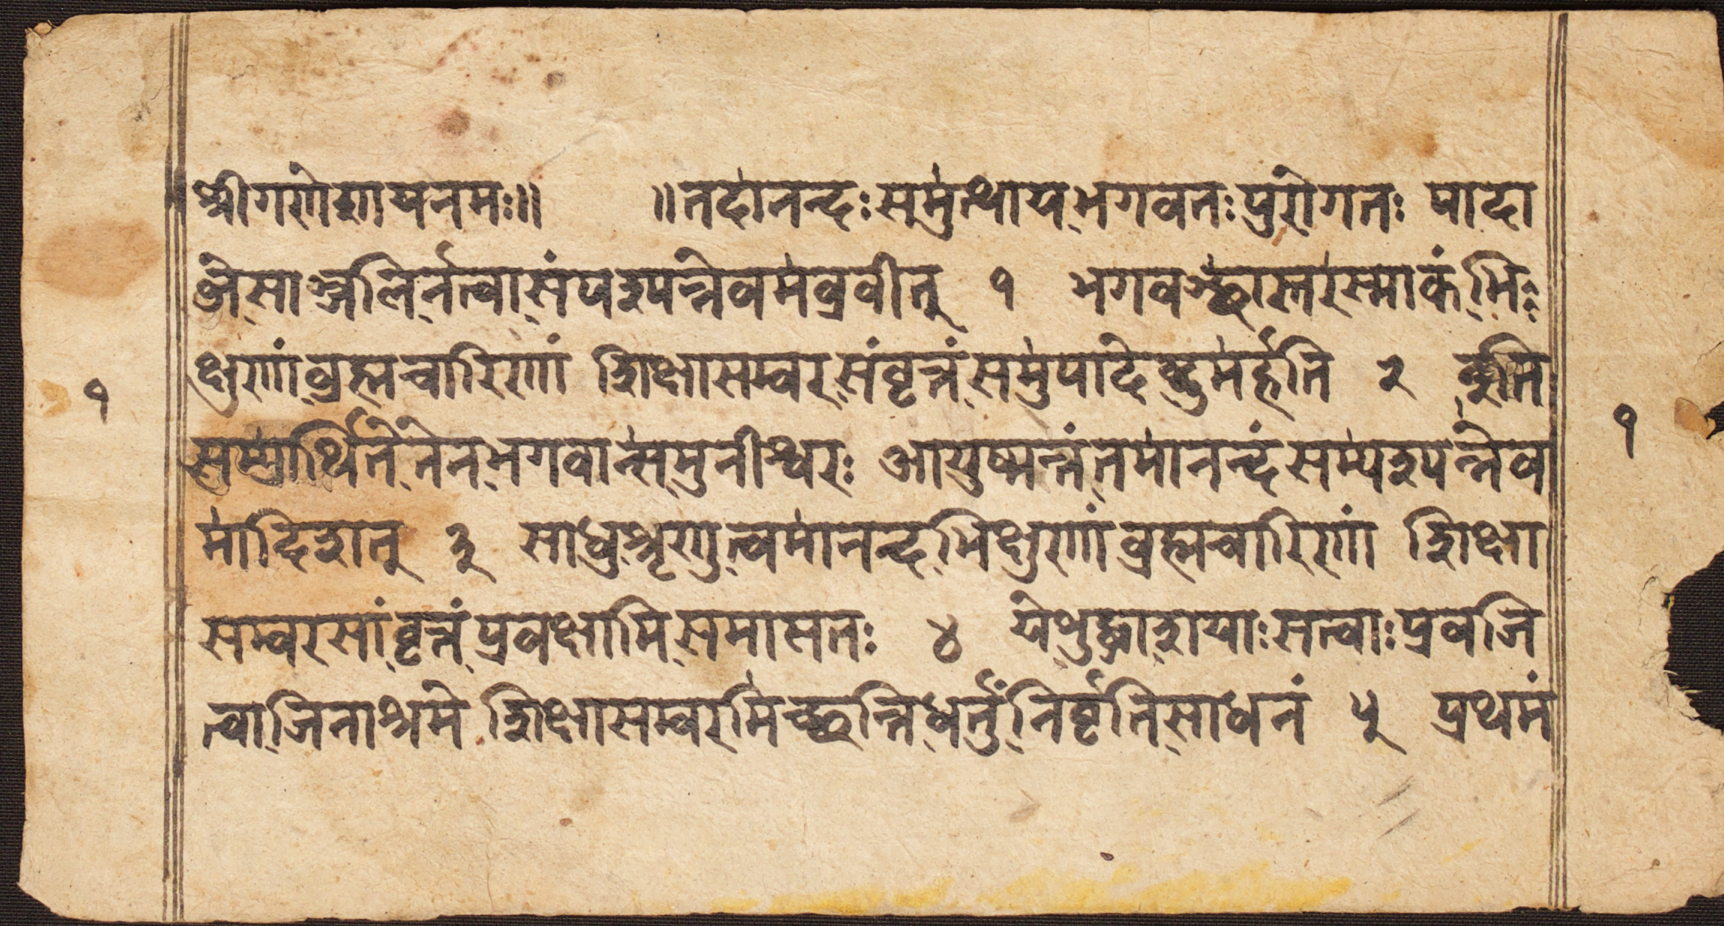 श्रीगणेशायनमः॥ ॥तदानन्दः समुत्थाय भगवतः पुरोगतः पादा
ब्जे साञ्जलिर्नत्वा संपश्यन्नेवमब्रवीत् १ भगवञ्छास्तरस्माकं भि
क्षुणां ब्रह्मचारिणां शिक्षासम्वर संवृत्तं समुपादेष्टुमर्हति २ इति
सम्प्रार्थिते तेन भगवान्स मुनीश्वरः आयुष्मन्तं तमानन्दं सम्पश्यन्नेव
मादिशत् ३ साधु शृणु त्वमानन्द भिक्षुणां ब्रह्मचारिणां शिक्षा
सम्वरसांवृत्तं प्रवक्षामि समासतः ४ ये शुद्धाशयाः सत्वाः प्रवजि
त्वा जिनाश्रमे शिक्षासम्वरमिच्छन्ति धर्तुं निर्वृतिसाधनं ५ प्रथमं
१
१